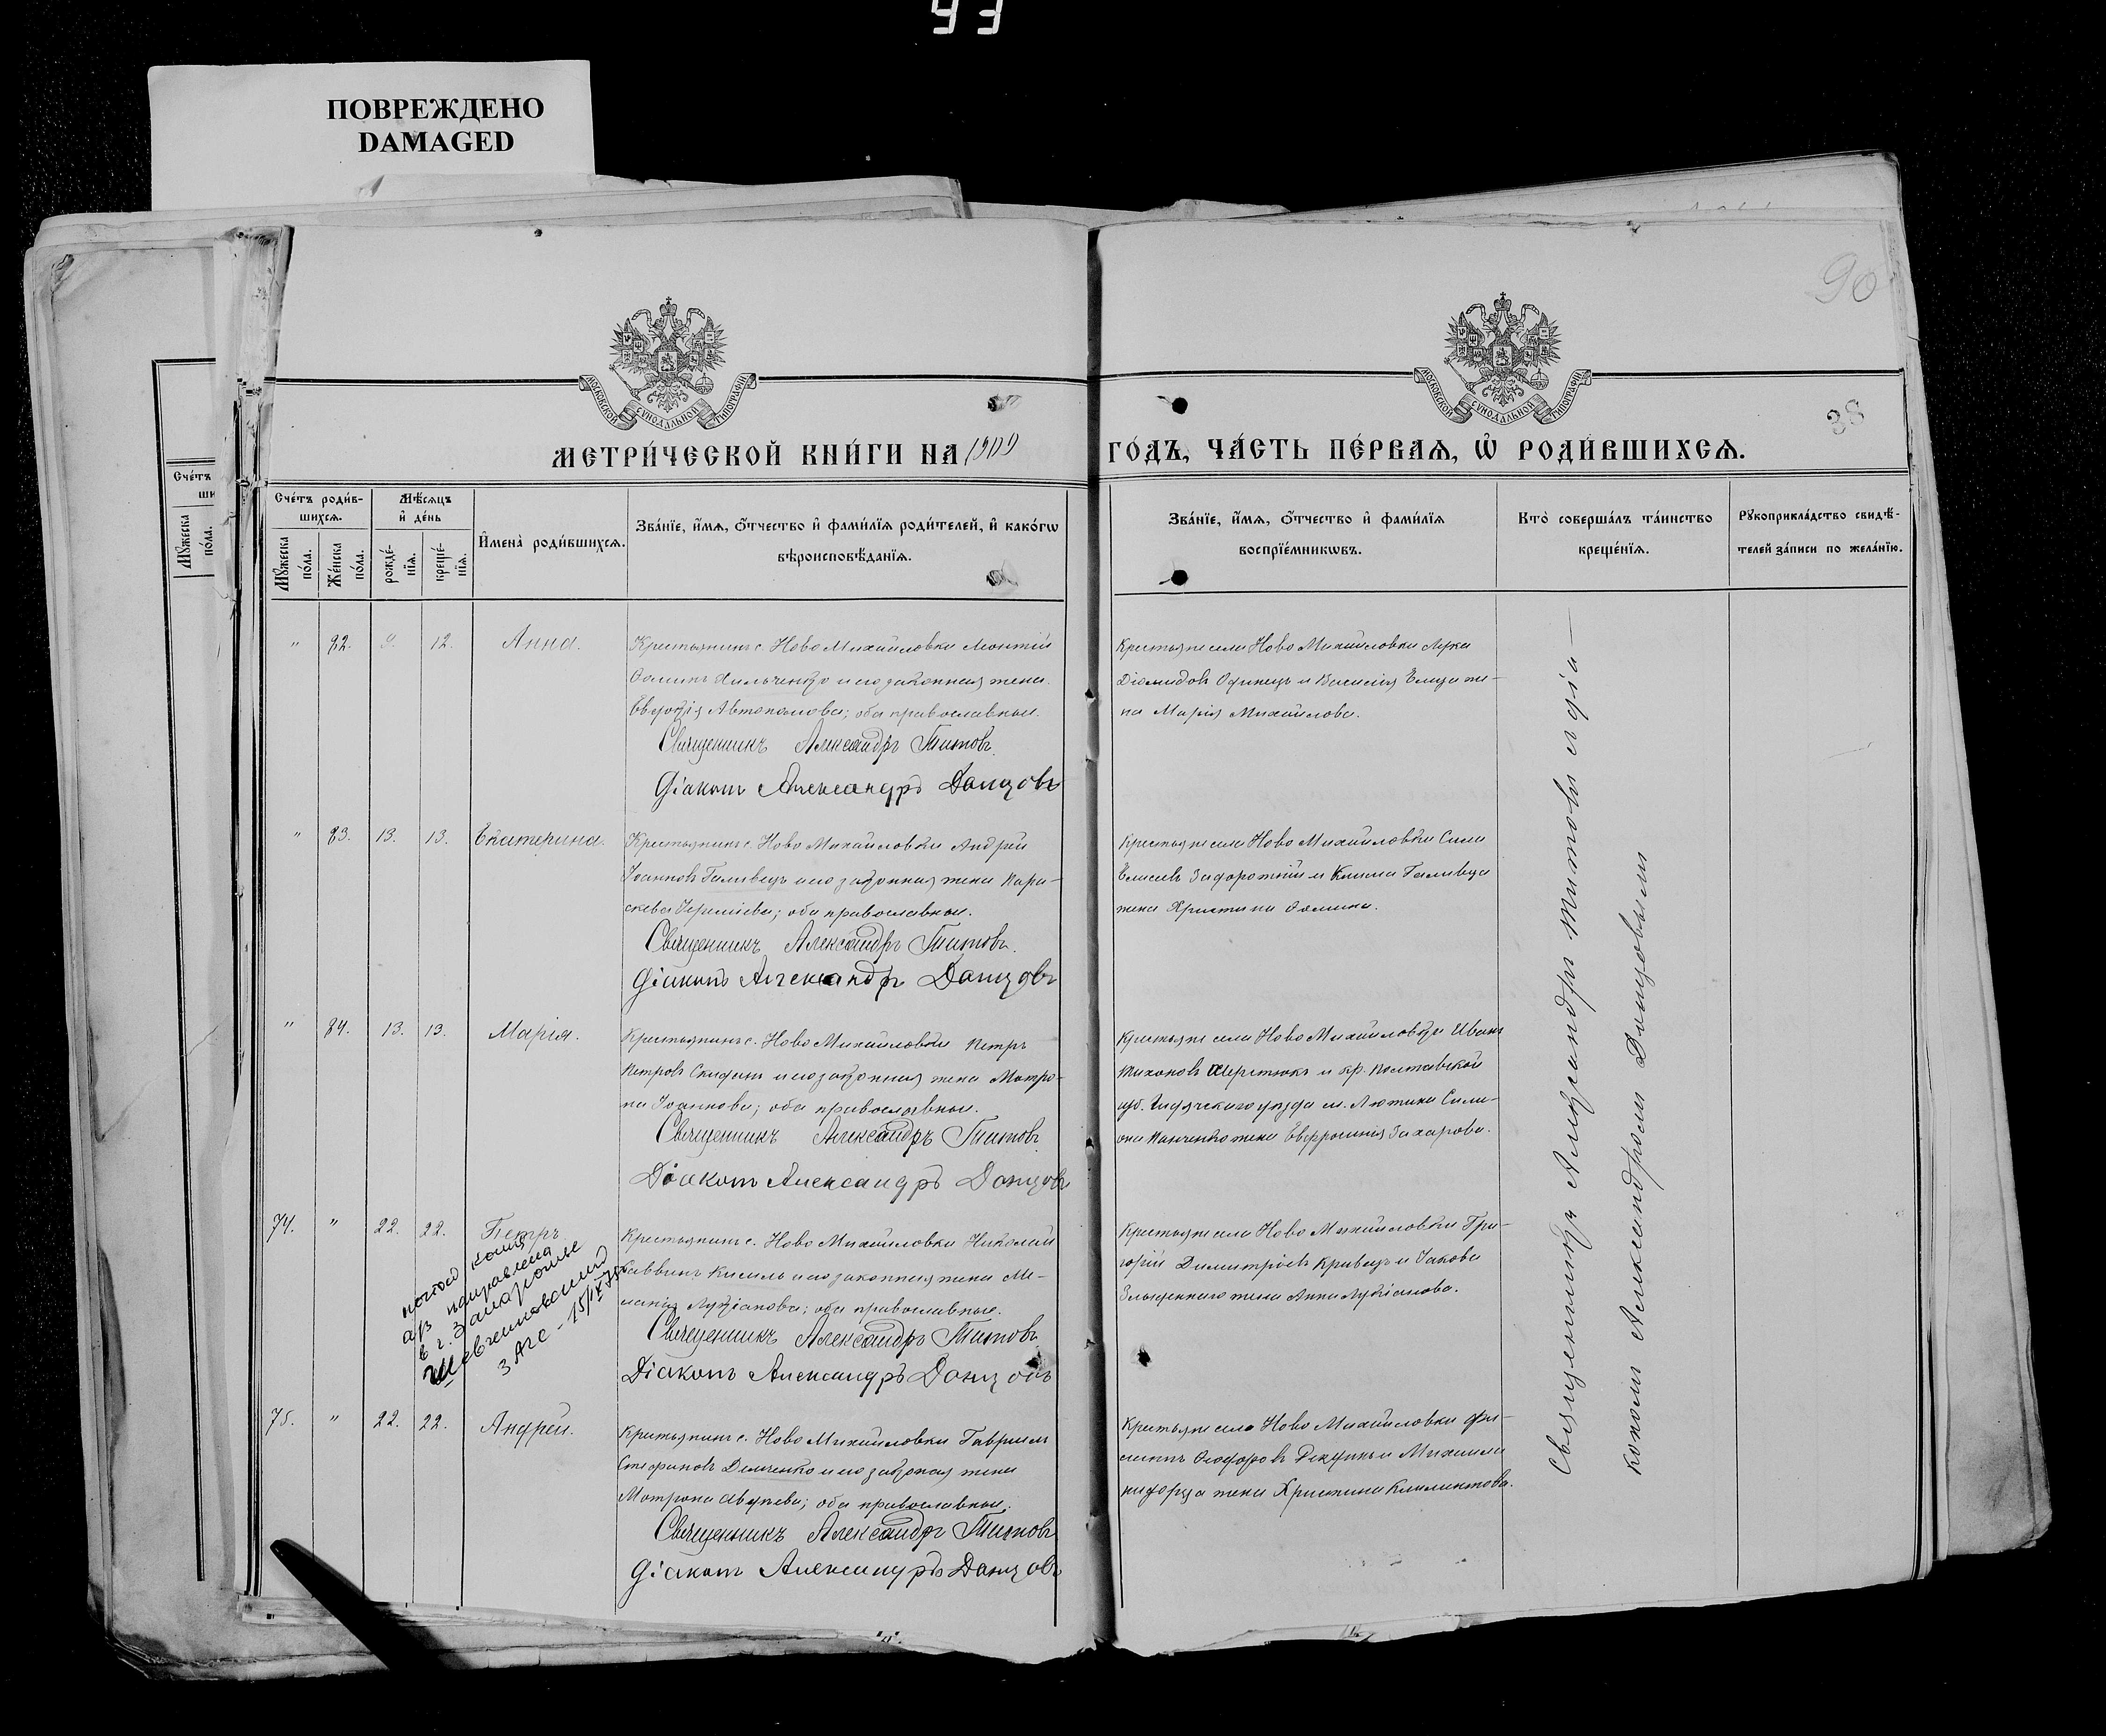 ПОВРЕЖДЕНО
DAMAGED
90
38
МОСКОВСКОЙ СУНОДАЛЬНОЙ ТИПОГРАФІИ
МОСКОВСКОЙ СУНОДАЛЬНОЙ ТИПОГРАФІИ
МЕТРИ́ЧЕСКОЙ КНИ́ГИ НА 1909 ГО́ДЪ, ЧА́СТЬ ПЕ́РВАѦ, Ѽ РОДИ́ВШИХСѦ.
Сче́тъ роди́в-
шихсѧ.
Мꙋжеска по́ла.
Же́нска по́ла.
Мѣ́сѧцъ
и҆ де́нь
рожде́-
нїѧ.
креще́-
нїѧ.
И҆мена̀ роди́вшихсѧ.
Зва́нїе, и҆́мѧ, ѻ҆́тчество и҆ фами́лїѧ роди́телей, и҆ како́гѡ
вѣроисповѣ́данїѧ.
Зва́нїе, и҆́мѧ, ѻ҆́тчество и҆ фами́лїѧ
воспрїе́мникѡвъ.
Кто̀ соверша́лъ та́инство
креще́нїѧ.
Рꙋкоприкла́дство свидѣ́-
телей за́писи по жела́нїю.
" 82. 9. 12. Анна.
Крестьянинъ с. Ново Михайловки Монтій
Ѳоминъ Хильченко и его законная жена
Евдокія Автономова; оба православные.
Священникъ Александръ Титовъ
Діаконъ Александръ Донцовъ
Крестьяне села Ново Михайловки Лука
Діомидовъ Одинецъ и
на Марія Михайлова.
" 83. 13. 13. Екатерина.
Крестьянинъ с. Ново Михайловки Андрей
Іоанновъ Галивецъ и его законная жена Пара-
скева; оба православные.
Священникъ Александръ Титовъ
Діаконъ Александръ Донцовъ
Крестьяне села Ново Михайловки Сила
Елисеевъ Задорожній и Клима Галивца
жена Христина Ѳомина.
" 84. 13. 13. Марія.
Крестьянинъ с. Ново Михайловки Петръ
Петровъ Скиданъ и его законная жена Матро-
на Іоаннова; оба православные.
Священникъ Александръ Титовъ
Діаконъ Александръ Донцовъ
Крестьяне села Ново Михайловки Иванъ
Тихоновъ Шерстюкъ и кр. Полтавской
губ. Гадячскаго уѣзда м. Лютики Сили-
она Панченко жена Евфросинія Захарова.
74. " 22. 22. Петръ
Крестьянинъ с. Ново Михайловки Николай
Саввинъ Кисиль и его законная жена Ме-
ланія Лукіанова; оба православные.
Священникъ Александръ Титовъ
Діаконъ Александръ Донцовъ
Крестьяне села Ново Михайловки Гри-
горій Димитріевъ Кривецъ и Іакова
жена Анна Лукіанова.
копия
а/з направлена
в г. Запорожье
Шевченковский
ЗАГС - 15/IV
75. " 22. 22. Андрей.
Крестьянинъ с. Ново Михайловки Гавріилъ
Стефановъ Демченко и его законная жена
Матрона; оба православные.
Священникъ Александръ Титовъ
Діаконъ Александръ Донцовъ
Крестьяне села Ново Михайловки Фи-
липпъ Ѳеодоровъ и Михаила
жена Христина Климентова.
Священникъ Александръ Титовъ и діа-
кономъ Александромъ Донцовымъ